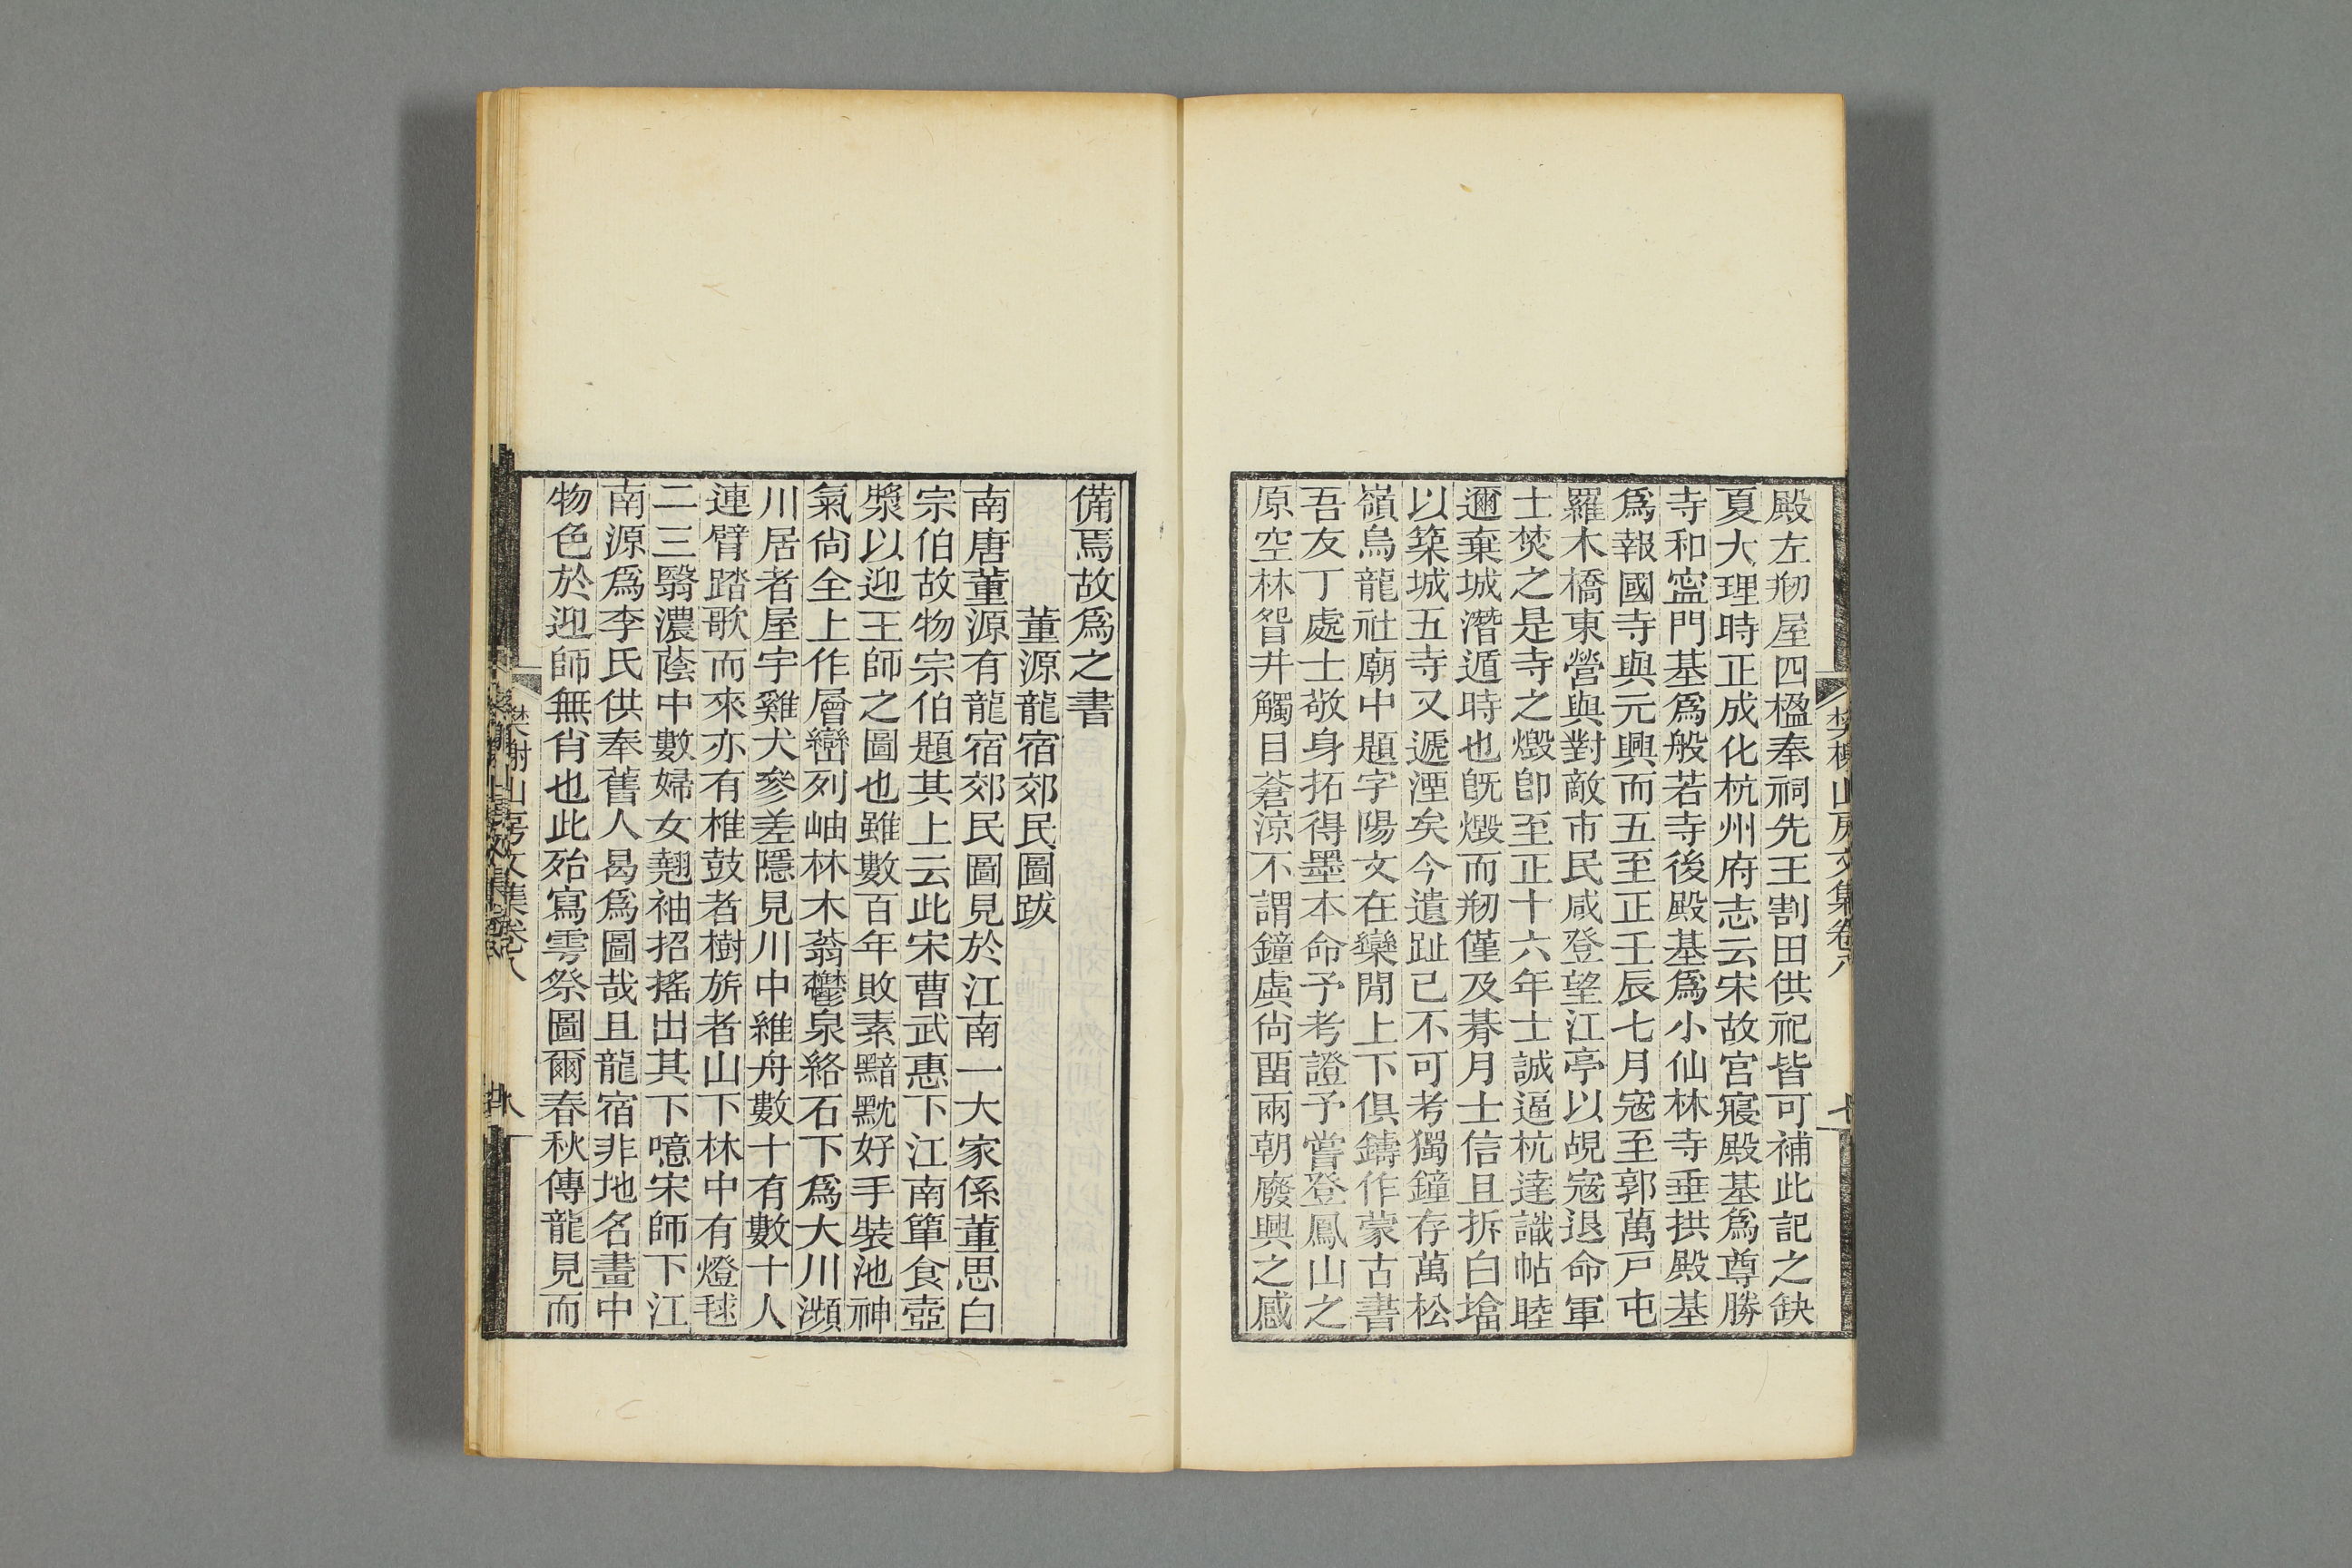 殿左剏屋四楹奉祠先王割田供祀皆可補此記之缺
夏大理時正成化杭州府志云宋故宮寢殿基爲尊勝
寺和寍門基爲般若寺後殿基爲小仙林寺垂拱殿基
爲報國寺與元興而五至正壬辰七月寇至郭萬戸屯
羅木橋東營與對敵市民咸登望江亭以覘寇退命軍
士焚之是寺之燬卽至正十六年士誠逼杭達識帖睦
邇棄城潛遁時也旣燬而剏僅及朞月士信且拆白墖
以築城五寺又遞湮矣今遺趾已不可考獨鐘存萬松
嶺烏龍社廟中題字陽文在欒閒上下俱鑄作蒙古書
吾友丁處士敬身拓得墨本命予考證予嘗登鳳山之
原空林眢井觸目蒼涼不謂鐘虡尙畱兩朝廢興之感
樊榭山房文集卷八
備焉故爲之書
董源龍宿郊民圖跋
南唐董源有龍宿郊民圖見於江南一大家係董思白
宗伯故物宗伯題其上云此宋曹武惠下江南簞食壺
漿以迎王師之圖也雖數百年敗素黯黕好手裝池神
氣尙全上作層巒列岫林木蓊欝泉絡石下爲大川瀕
川居者屋宇雞犬參差隱見川中維舟數十有數十人
連臂踏歌而來亦有椎鼓者樹旂者山下林中有燈毬
二三翳濃蔭中數婦女翹袖招搖出其下噫宋師下江
南源爲李氏供奉舊人曷爲圖哉且龍宿非地名畫中
物色於迎師無肖也此殆寫雩祭圖爾春秋傳龍見而
樊榭山房文集卷八